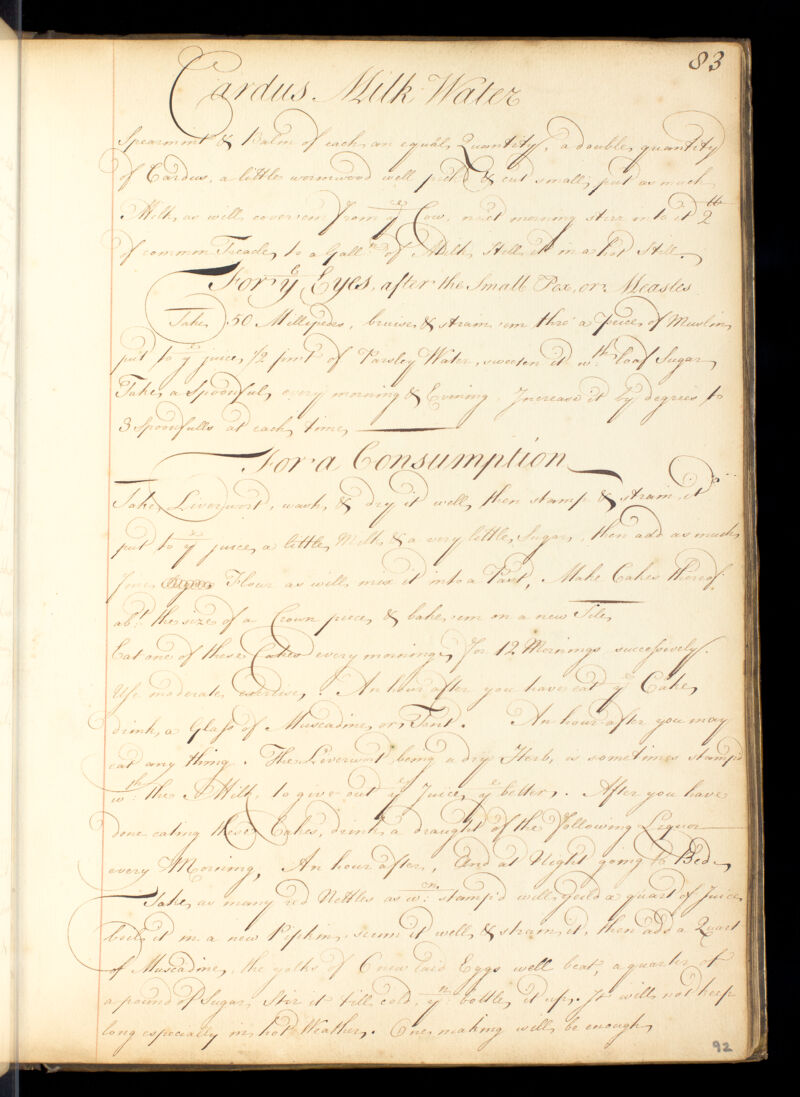 83
Cardus Milk Water
Spearmint & Balm of each an equal Quantity, a double quantity
of Cardus, a little wormwood well pick'd & cut small, put as much
Milk as will cover em from ye Cow, next morning stirr into it 2 lb
of common Treacle, to a Galln of Milk, Still it in a hot Still.
For ye Eyes, after the Small Pox, or Measles
Take 50 Millepedes, bruise & strain em thro' a peice of Muslin,
put to ye juice, 1/2 pint of Parsley Water, sweeten it wth: loaf Sugar
Take a Spoonful, every morning & Evening. Increase it by degrees to
3 Spoonfulls at each time
For a Consumption
Take Liverwort, wash, & dry it well, then stamp & strain it
put to ye juice, a little Milk & a very little Sugar, then add as much
Flour as will mix it into a Past, Make Cakes thereof
abt: the size of a Crown piece, & bake em on a new Tile,
Eat one of these Cakes every morning, for 12 Mornings successively.
Use moderate exercise. An hour after you have eat ye Cake,
drink a Glass of Muscadine, or Tent. An hour after you may
eat any thing. The Liverwort being a dry Herb, is sometimes stamp'd
wth: the Milk, to give out ye Juice ye better. After you have
done eating these Cakes, drink a draught of the following Liquor
every Morning, An hour after, And at Night going to Bed.
Take as many red Nettles as wn: stamp'd will yeild a quart of Juice
boil it in a new Pipkin, scum it well, & strain it, then add a Quart
of Muscadine, the yolks of 6 new laid Eggs well beat, a quarter of
a pound of Sugar, Stir it till cold, yn: bottle it up. It will not keep
long especially in hot Weather. One making will be enough
92